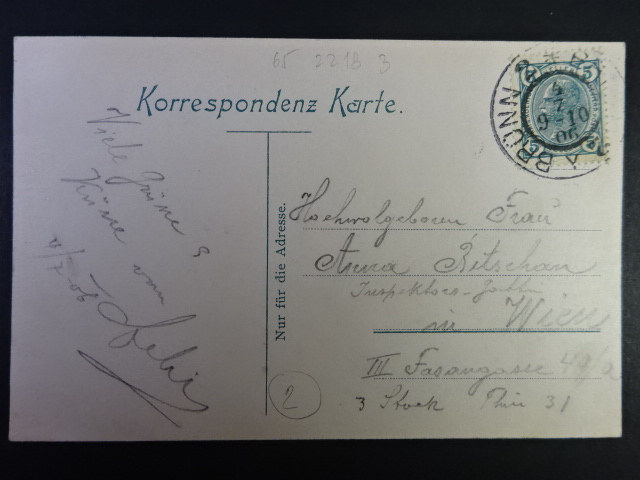 65 2218 3
Korrespondenz Karte.
BRÜNN 2
4
7
9-10
06
5 5
Viele Grüsse &
Küsse von
4/7 06
Nur für die Adresse.
Hochwolgeboren Frau
Anna
Inspektors-
in Wien
III Fasangasse 49/a
3 Stock Thür 31
2